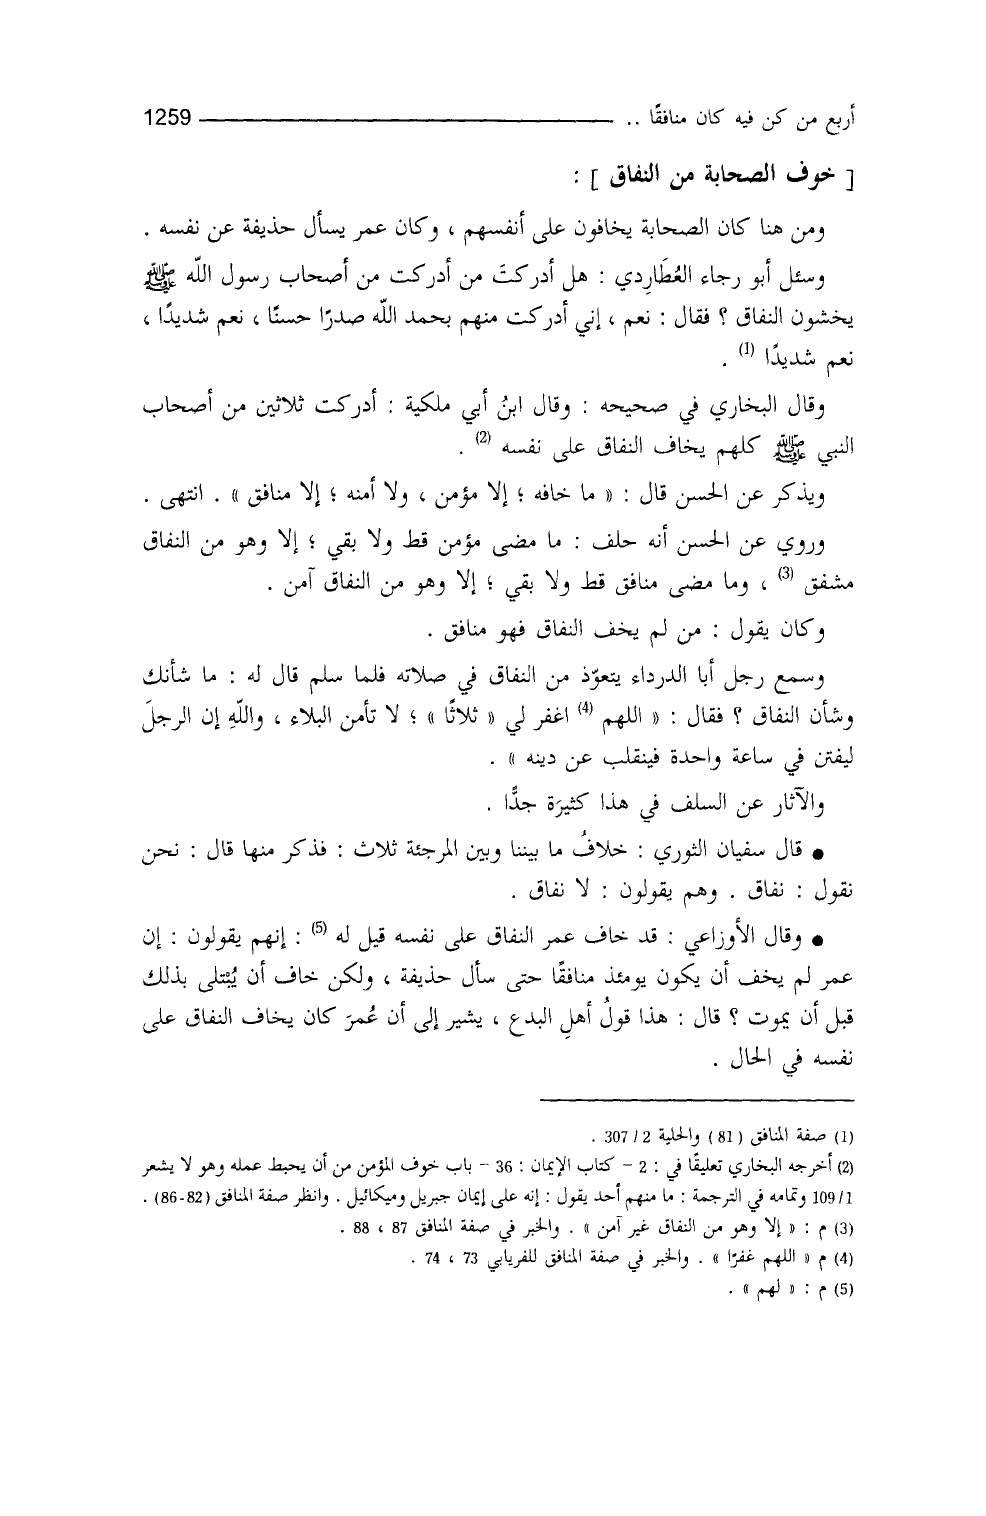 أربع من كن فيه كان منافقًا .. 1259
[ خوف الصحابة من النفاق ] :
ومن هنا كان الصحابة يخافون على أنفسهم ، وكان عمر يسأل حذيفة عن نفسه .
وسئل أبو رجاء العُطَارِدي : هل أدركتَ من أدركت من أصحاب رسول اللّه ﷺ
يخشون النفاق ؟ فقال : نعم ، إني أدركت منهم بحمد اللّه صدرًا حسنًا ، نعم شديدًا ،
نعم شديدًا (1) .
وقال البخاري في صحيحه : وقال ابنُ أبي ملكية : أدركت ثلاثين من أصحاب
النبي ﷺ كلهم يخاف النفاق على نفسه (2) .
ويذكر عن الحسن قال : « ما خافه ؛ إلا مؤمن ، ولا أمنه ؛ إلا منافق » . انتهى .
وروي عن الحسن أنه حلف : ما مضى مؤمن قط ولا بقي ؛ إلا وهو من النفاق
مشفق (3) ، وما مضى منافق قط ولا بقي ؛ إلا وهو من النفاق آمن .
وكان يقول : من لم يخف النفاق فهو منافق .
وسمع رجل أبا الدرداء يتعوّذ من النفاق في صلاته فلما سلم قال له : ما شأنك
وشأن النفاق ؟ فقال : « اللهم (4) اغفر لي « ثلاثًا » ؛ لا تأمن البلاء ، واللّهِ إن الرجلَ
ليفتن في ساعة واحدة فينقلب عن دينه » .
والآثار عن السلف في هذا كثيرَة جدًّا .
● قال سفيان الثوري : خلافُ ما بيننا وبين المرجئة ثلاث : فذكر منها قال : نحن
نقول : نفاق . وهم يقولون : لا نفاق .
● وقال الأوزاعي : قد خاف عمر النفاق على نفسه قيل له (5) : إنهم يقولون : إن
عمر لم يخف أن يكون يومئذ منافقًا حتى سأل حذيفة ، ولكن خاف أن يُبْتلى بذلك
قبل أن يموت ؟ قال : هذا قولُ أهلِ البدع ، يشير إلى أن عُمرَ كان يخاف النفاق على
نفسه في الحال .
(1) صفة المنافق ( 81 ) والحلية 2 / 307 .
(2) أخرجه البخاري تعليقًا في : 2 - كتاب الإيمان : 36 - باب خوف المؤمن من أن يحبط عمله وهو لا يشعر
1/ 109 وتمامه في الترجمة : ما منهم أحد يقول : إنه على إيمان جبريل وميكائيل . وانظر صفة المنافق (82-86) .
(3) م : « إلا وهو من النفاق غير آمن » . والخبر في صفة المنافق 87 ، 88 .
(4) م « اللهم غفرًا » . والخبر في صفة المنافق للفريابي 73 ، 74 .
(5) م : « لهم » .